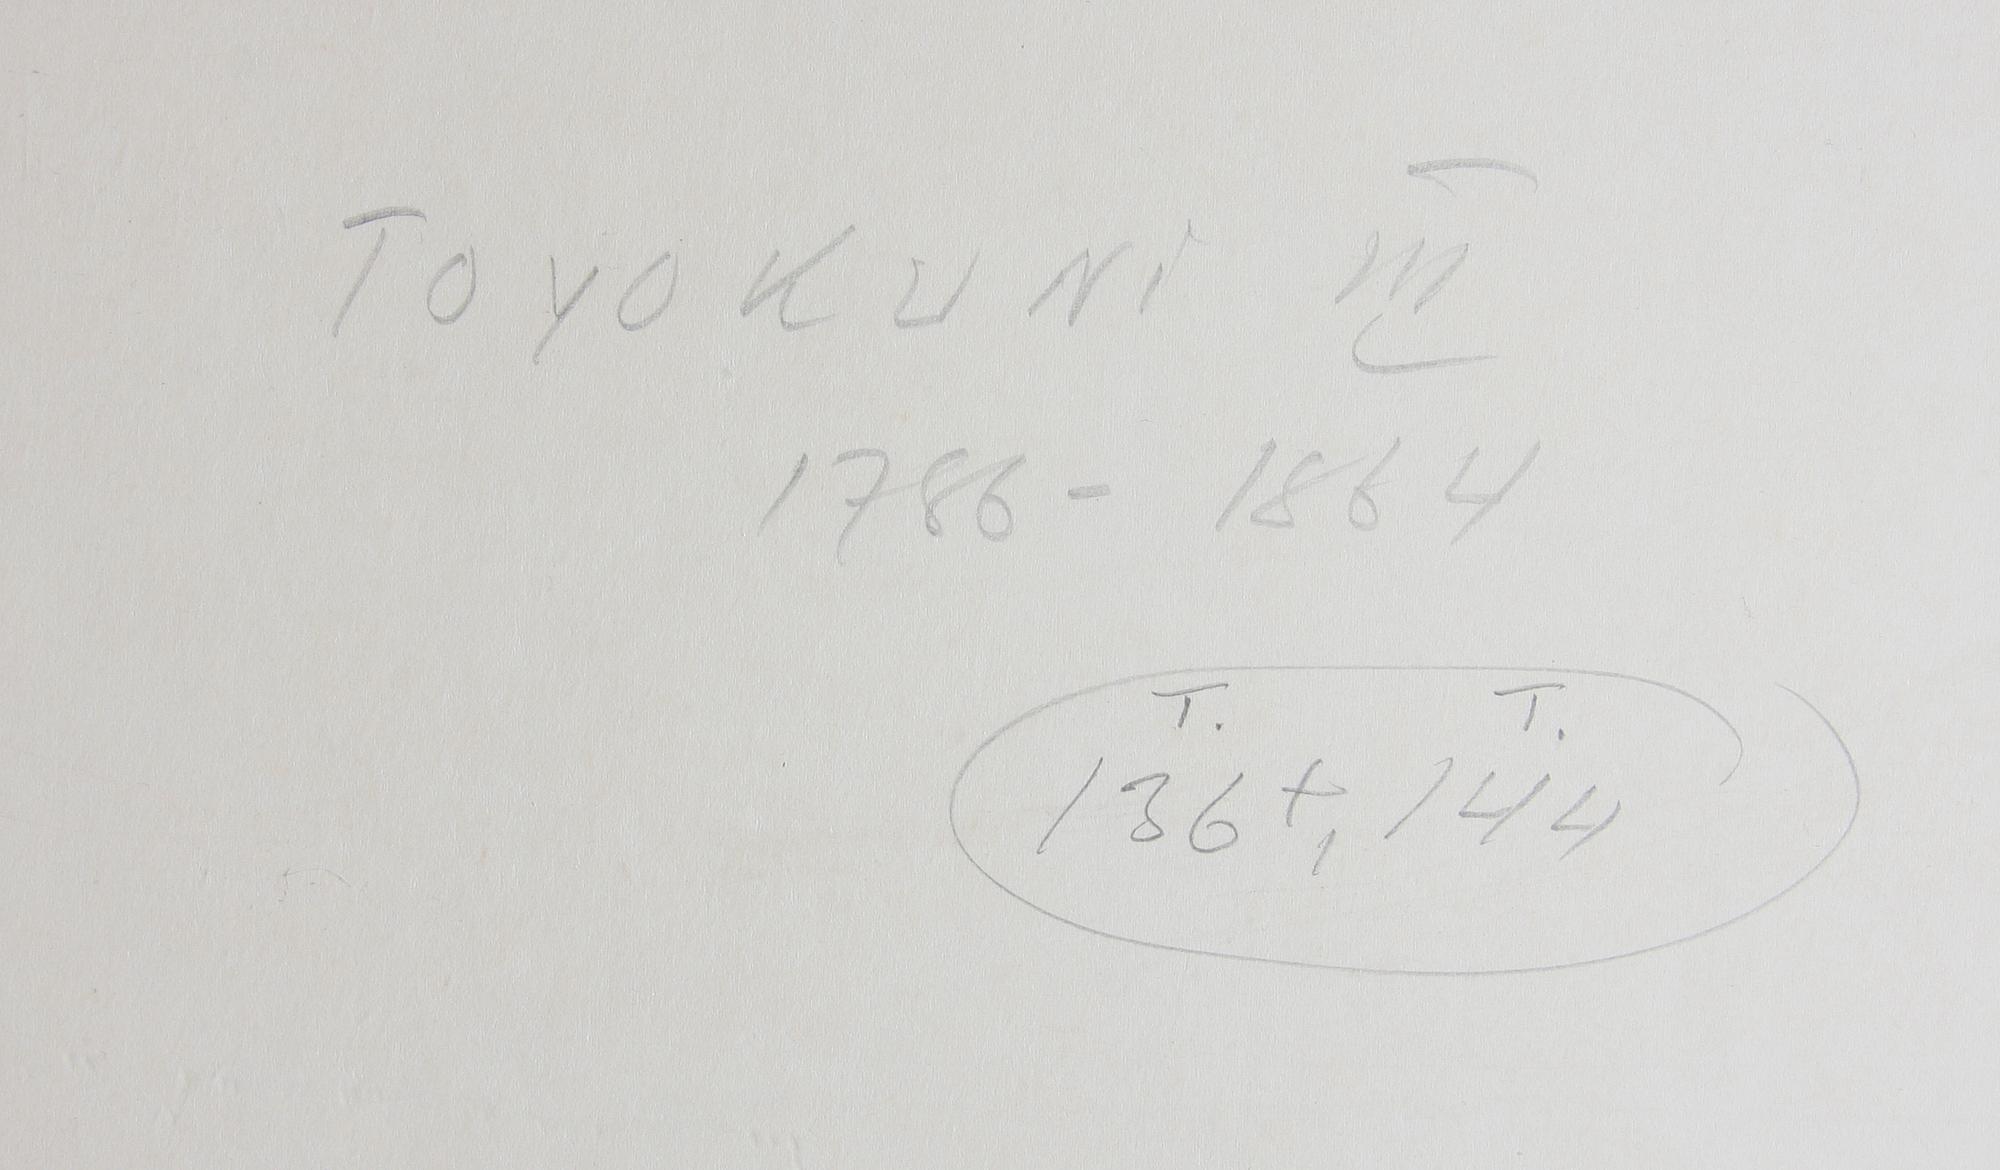 TOYOKUNI III
1786 - 1864
T. T.
136+, 144